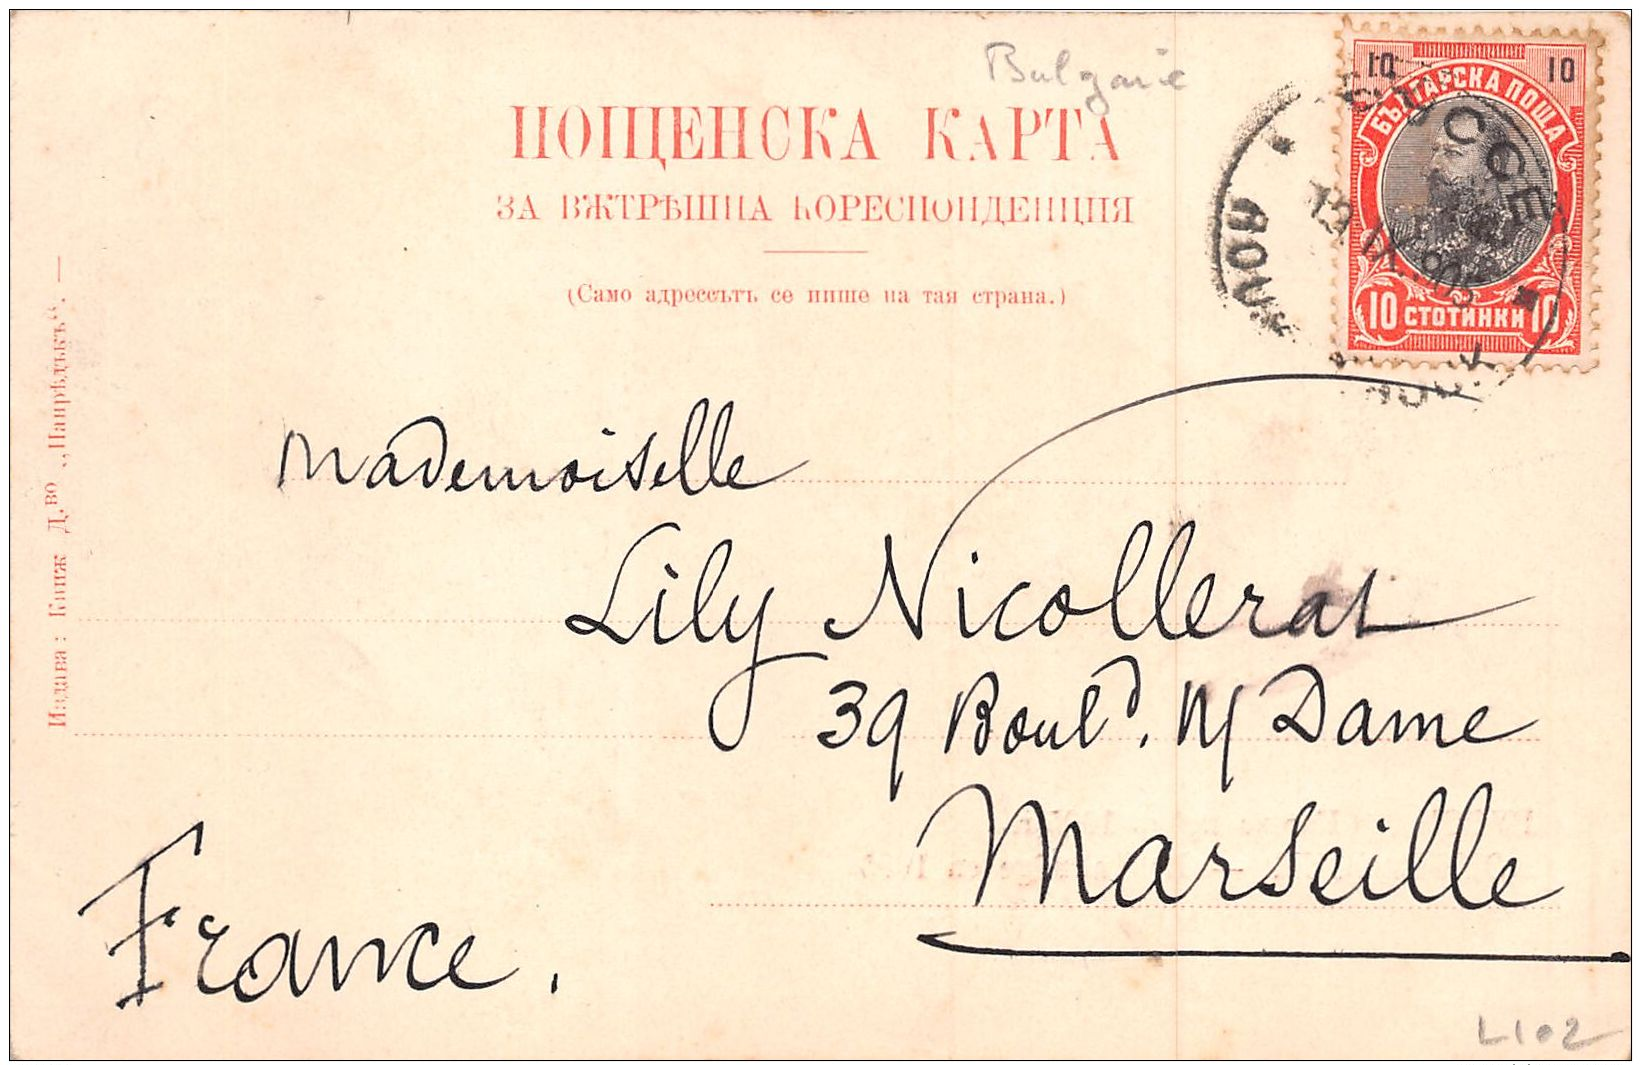 Bulgarie
ПОЩЕНСКА КАРТА
ЗА ВѪТРѢШНА КОРЕСПОНДЕНЦИЯ
(Само адрессътъ се пише на тая страна.)
10 10
БЪЛГАРСКА ПОЩА
10 СТОТИНКИ 10
Издава: Книж Д.ВО „Напрѣдъкъ“. —
Mademoiselle
Lily Nicollerat
39 Boulᵈ. N/ Dame
Marseille
France.
L102